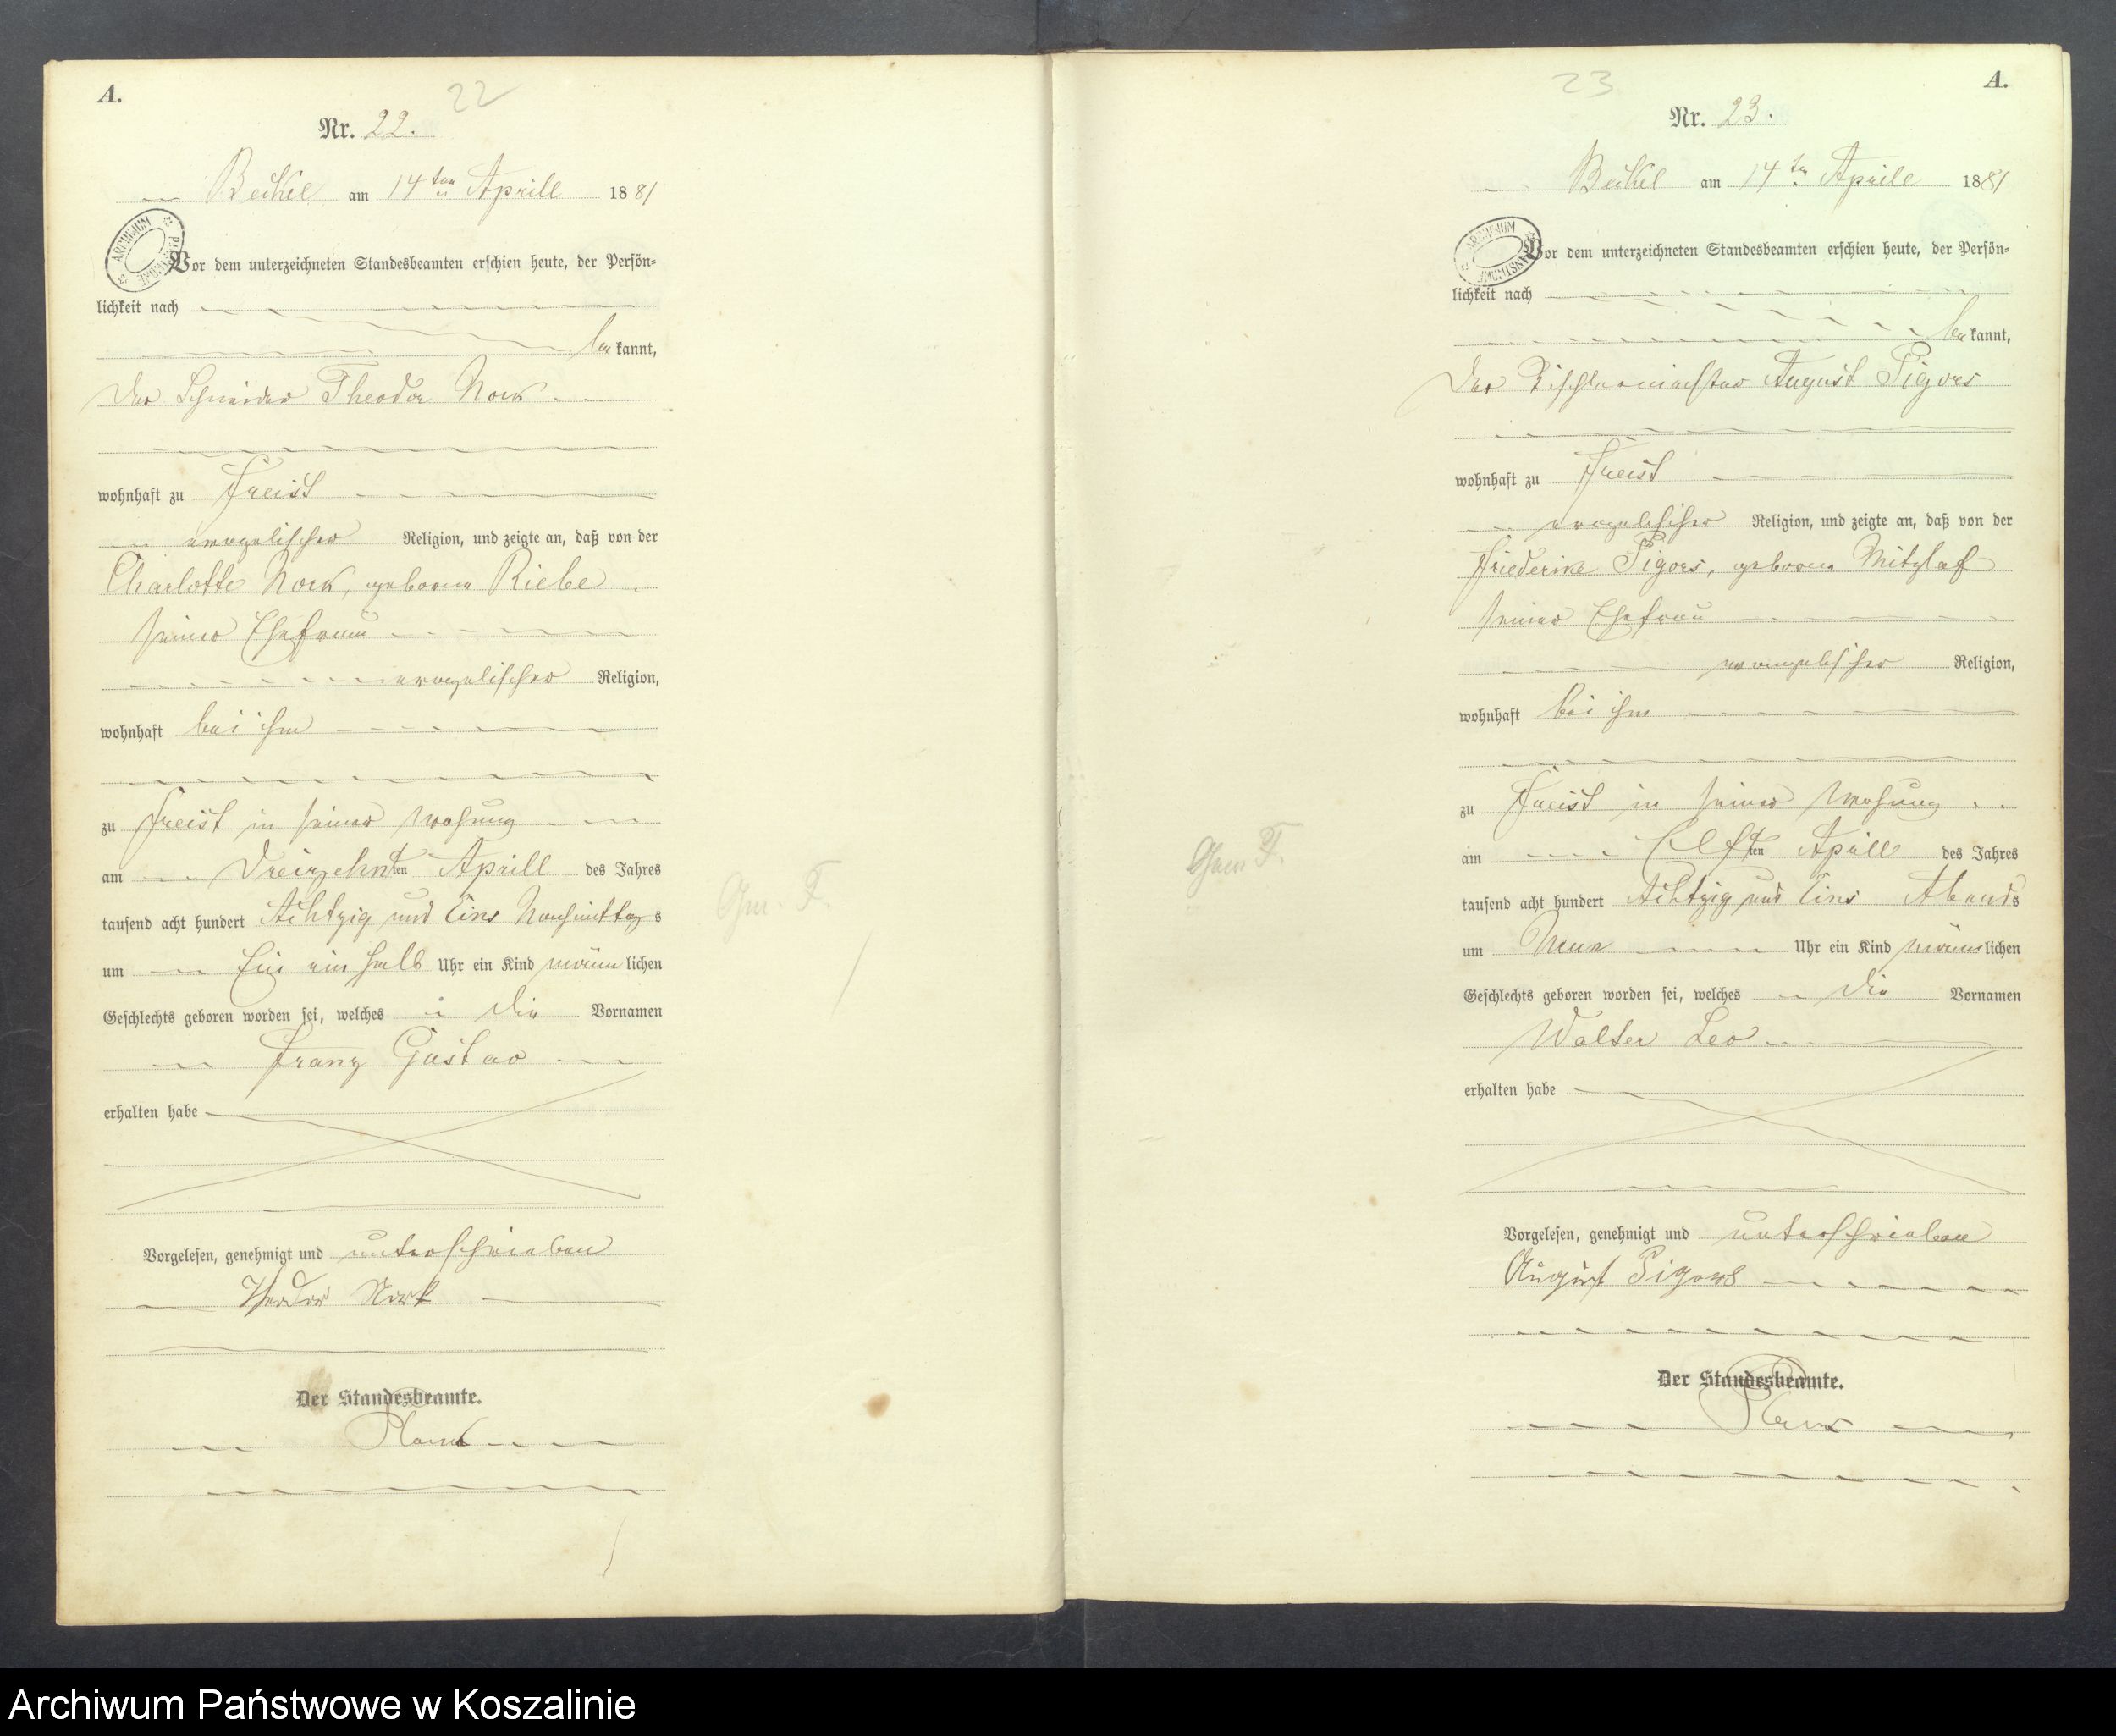 A.
22
Nr. 22.
Beckel am 14ten Aprill 1881
ARCHIWUM
Vor dem unterzeichneten Standesbeamten erschien heute, der Persön-
lichkeit nach
be kannt,
der Schneider Theodor Nork
wohnhaft zu Freist
evangelischer Religion, und zeigte an, daß von der
Charlotte Nork, geborne Riebe
seiner Ehefrau
evangelischer Religion,
wohnhaft bei ihm
zu Freist in seiner Wohnung
am Dreizehnten Aprill des Jahres
tausend acht hundert Achtzig und Eins Nachmittags
um Ein ein halb Uhr ein Kind männlichen
Geschlechts geboren worden sei, welches die Vornamen
Franz Gustav
erhalten habe
Vorgelesen, genehmigt und unterschrieben
Theodor Nork
Der Standesbeamte.
A.
23
Nr. 23.
Beckel am 14ten Aprill 1881
ARCHIWUM
Vor dem unterzeichneten Standesbeamten erschien heute, der Persön-
lichkeit nach
be kannt,
der Tischlermeister August Pigors
wohnhaft zu Freist
evangelischer Religion, und zeigte an, daß von der
Friederike Pigors, geborne Mitzlaf
seiner Ehefrau
evangelischer Religion,
wohnhaft bei ihm
zu Freist in seiner Wohnung
am Elften Aprill des Jahres
tausend acht hundert Achtzig und Eins Abends
um Neun Uhr ein Kind männlichen
Geschlechts geboren worden sei, welches die Vornamen
Walter Leo
erhalten habe
Vorgelesen, genehmigt und unterschrieben
August Pigors
Der Standesbeamte.
Archiwum Państwowe w Koszalinie